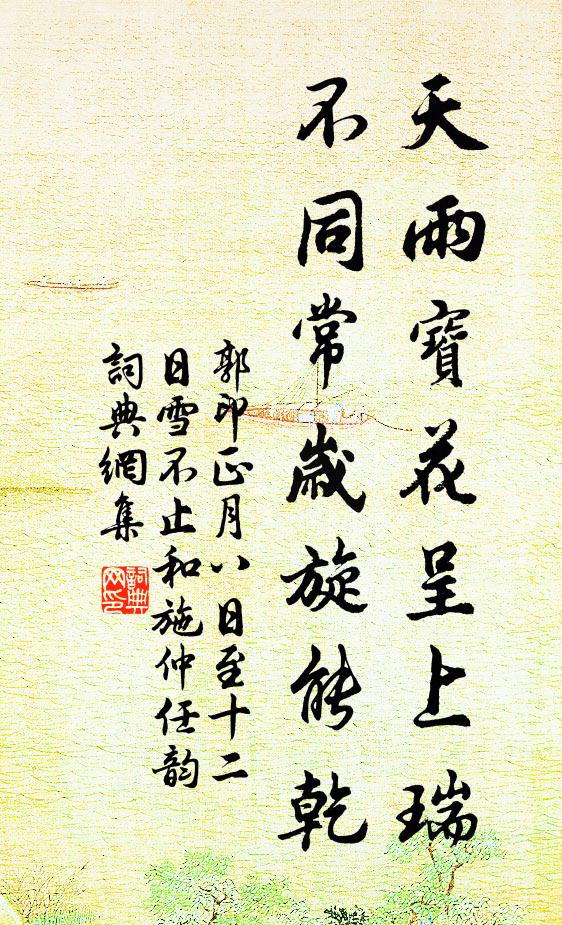 天雨寶花呈上瑞
不同常歲旋能乾
郭印正月八日至十二
日雪不止和施仲任韵
詞典網集
詞典
网印